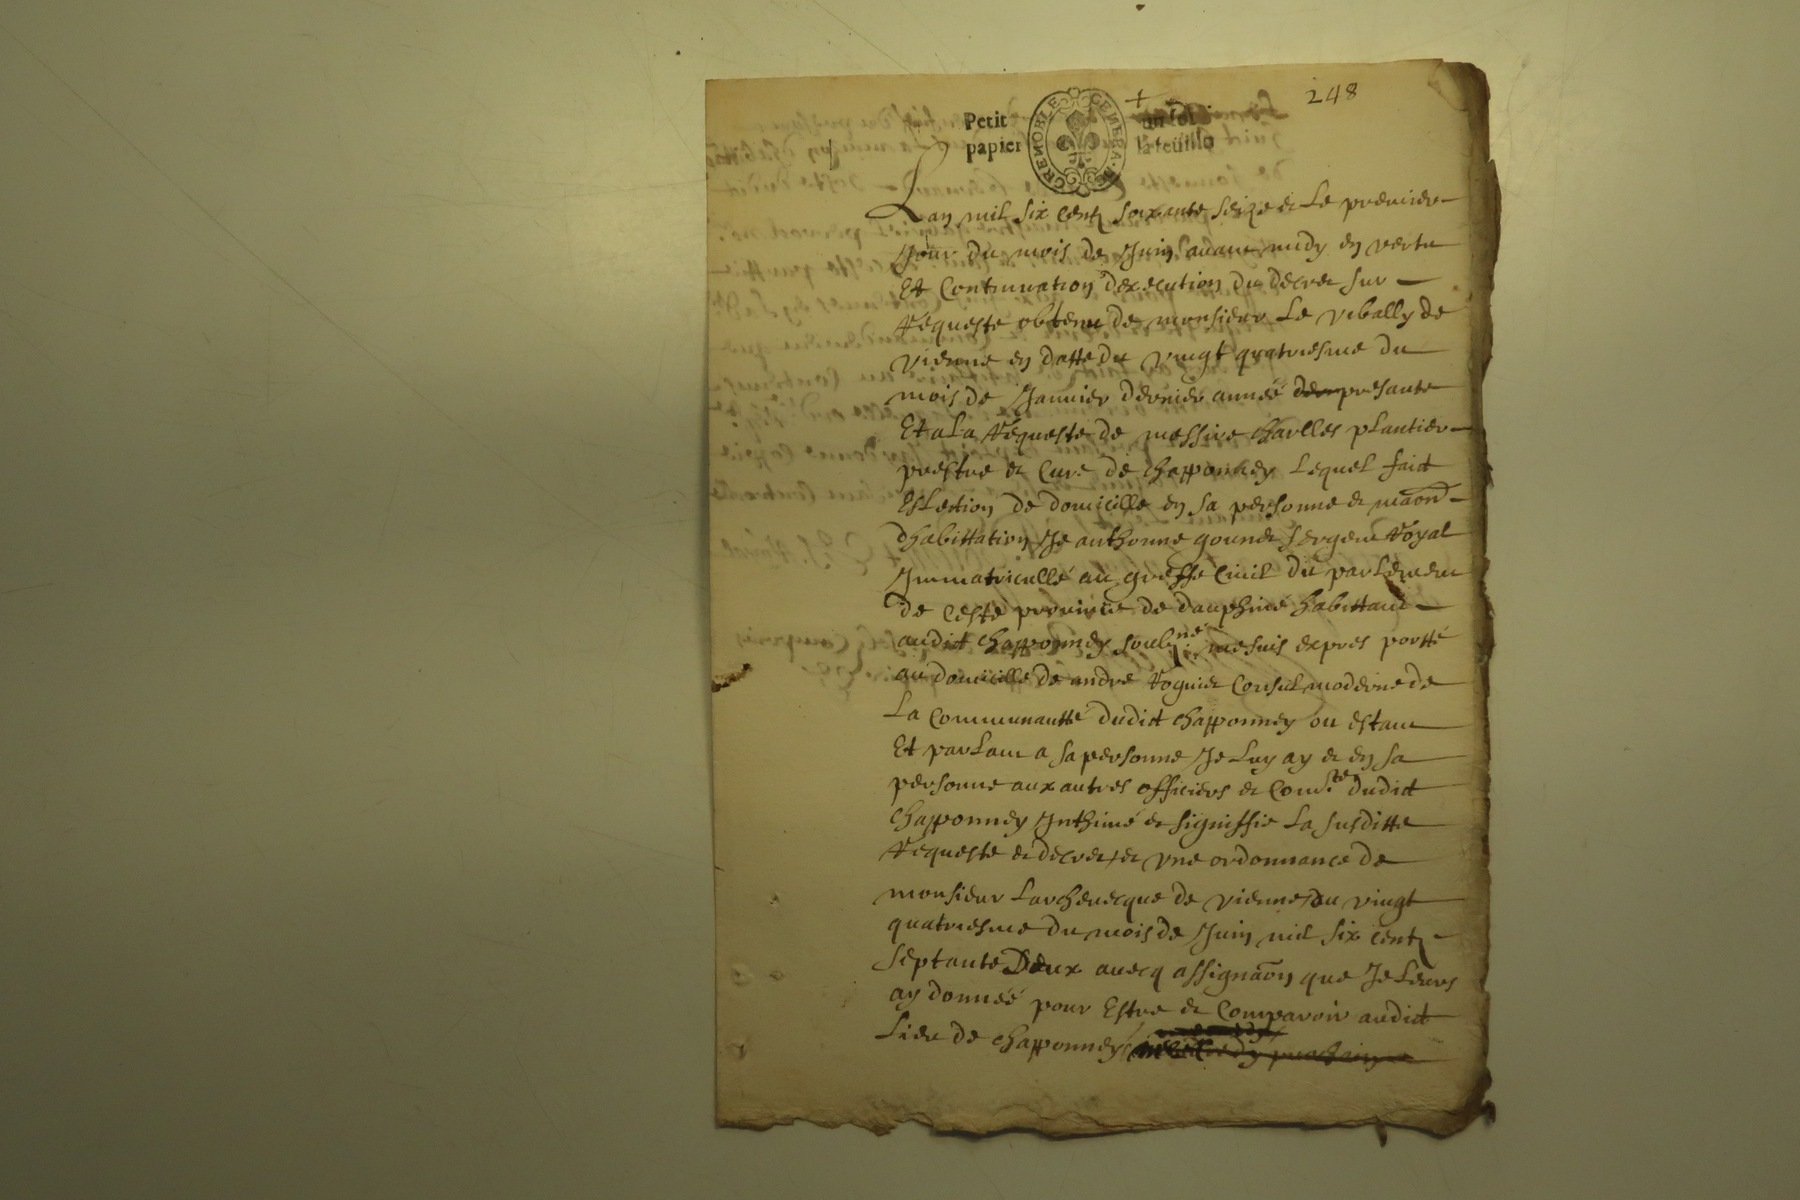 248
Petit papier GRENOBLE GENERA. DE un sol la feuille
Lan mil six centz soixante seize et Le premier
Jour du mois de Juin avant midy en vertu
Et Continuation dexecution du decret sur
Requeste obtenu de monsieur Le vibally de
vienne en datte du vingt quatriesme du
mois de Janvier dernier année presante
Et a La Requeste de messire charlles plantier
prestre et Curé de chapponney Lequel faict
Eslection de domicille en sa personne et maon̄
dhabittation Je anthonne gounet sergent Royal
Immatricullé au greffe Civil du parlement
de Ceste province de dauphiné habittant
audict chapponney soubz.né me suis expres portté
au domicille de andré Roguiet Consul moderne de
La Communautté dudict chapponney ou estant
Et parlant a sa personne Je Luy ay et en sa
personne aux autres officiers et Com.te dudict
chapponney Inthimé et signiffié La susditte
Requeste et decret et une ordonnance de
monsieur Larchevecque de vienne du vingt
quatriesme du mois de Juin mil six centz
septante Deux avecq assignaōn que Je Leurs
ay donnéé pour Estre et Comparoir audict
Lieu de chapponney